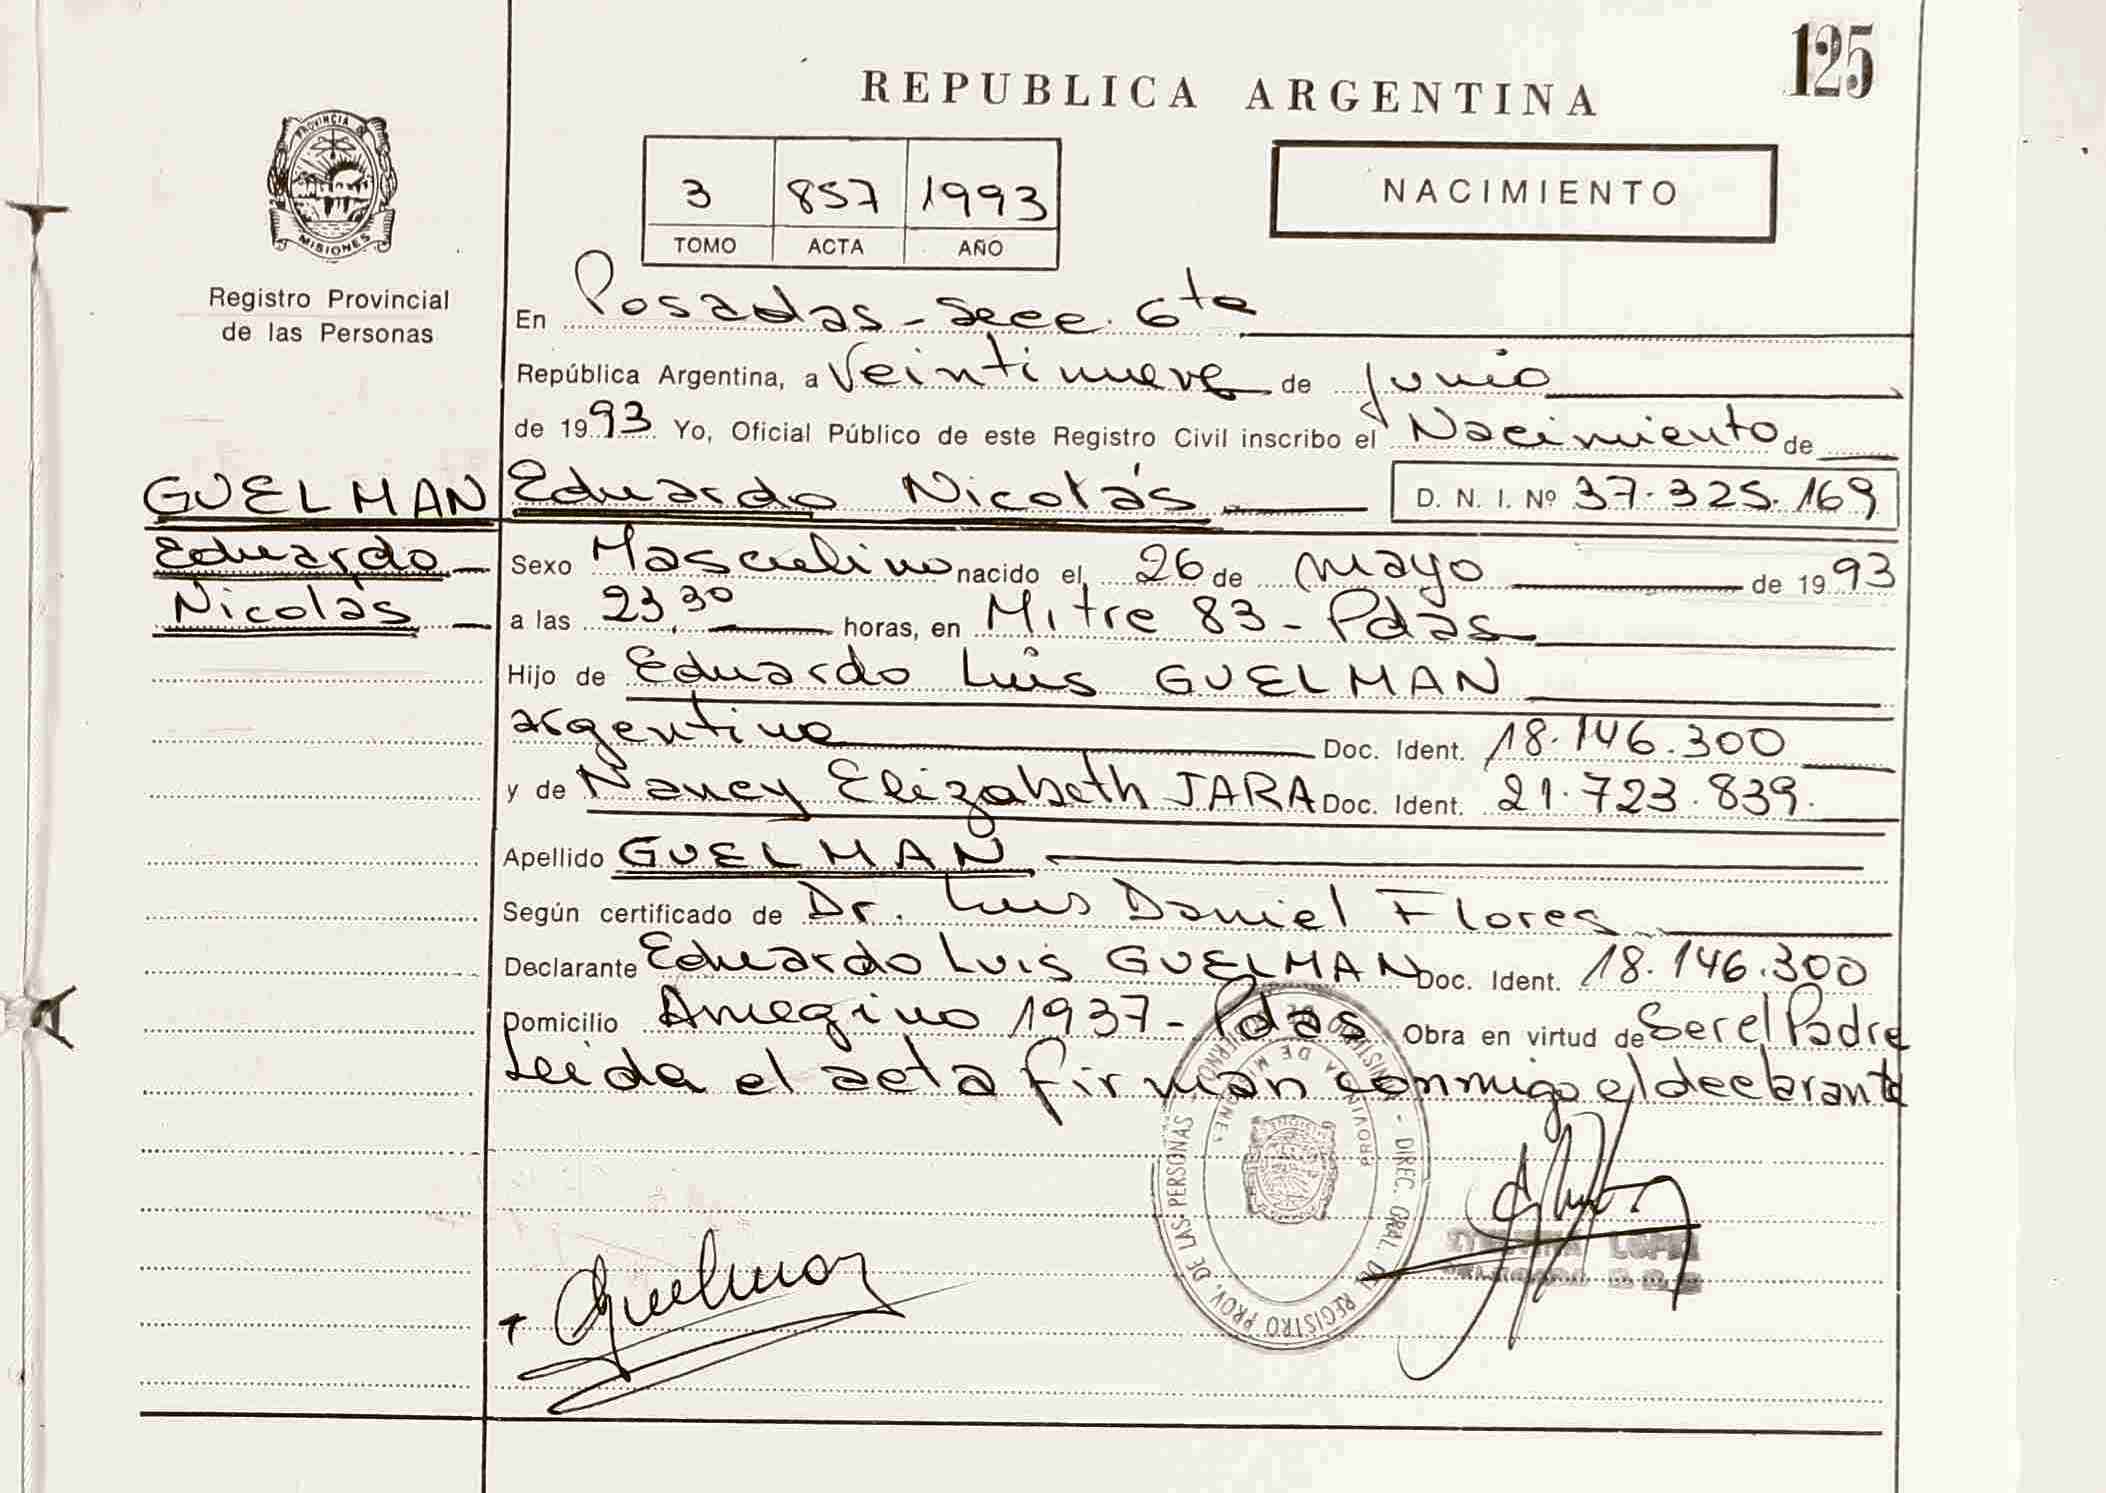 125
REPUBLICA ARGENTINA
PROVINCIA DE
MISIONES
Registro Provincial
de las Personas
3 857 1993
TOMO ACTA AÑO
NACIMIENTO
En Posadas - Secc. 6ta
República Argentina, a Veintinueve de junio
de 1993 Yo, Oficial Público de este Registro Civil inscribo el Nacimiento de
GUELMAN Eduardo Nicolás D. N. I. Nº 37.325.169
Eduardo
Nicolás
Sexo Masculino nacido el 26 de mayo de 1993
a las 23,30 horas, en Mitre 83 - Pdas
Hijo de Eduardo Luis GUELMAN
argentino Doc. Ident. 18.146.300
y de Nancy Elizabeth JARA Doc. Ident. 21.723.839.
Apellido GUELMAN
Según certificado de Dr. Luis Daniel Flores
Declarante Eduardo Luis GUELMAN Doc. Ident. 18.146.300
Domicilio Ameginо 1937 - Pdas Obra en virtud de Ser el Padre
Leida el acta firman conmigo el declarante
DIREC. GRAL. DEL REGISTRO PROV. DE LAS PERSONAS
PROVINCIA DE MISIONES
Guelman
LOPEZ